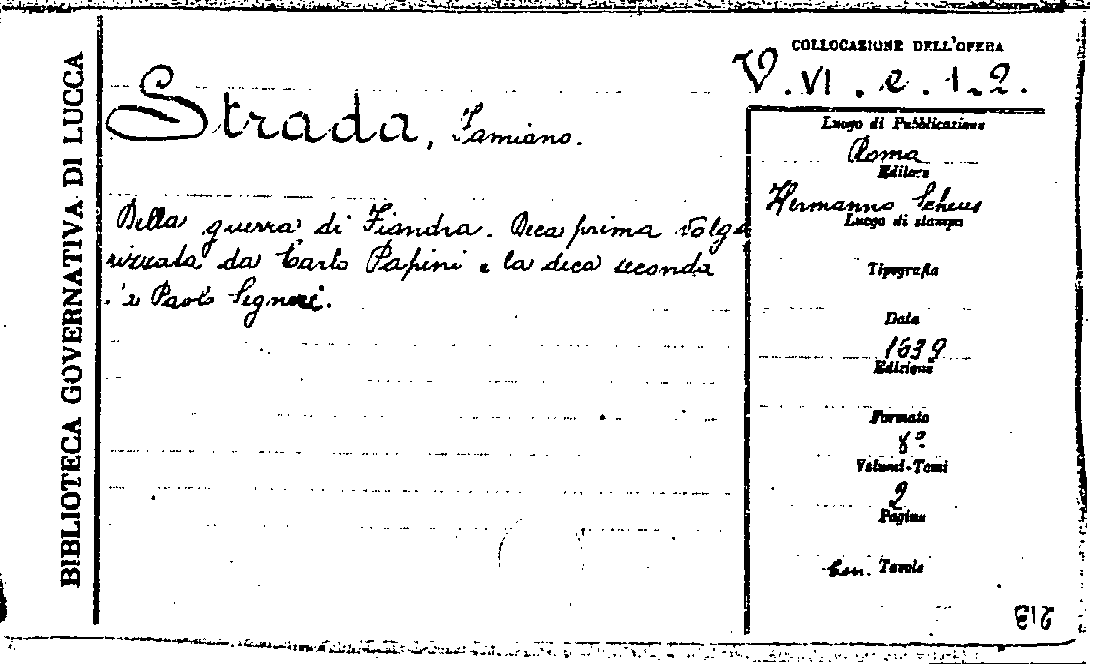 BIBLIOTECA GOVERNATIVA DI LUCCA
COLLOCAZIONE DELL'OPERA
V. VI. e. 1.2.
Strada, Famiano.
Della guerra di Fiandra. Deca prima volga
rizzata da Carlo Papini e la deca seconda
da Paolo Segneri.
Luogo di Pubblicazione
Roma
Editore
Hermanno Scheus
Luogo di stampa
Tipografia
Data
1639
Edizione
Formato
8º
Volumi-Tomi
2
Pagine
Con Tavole
213